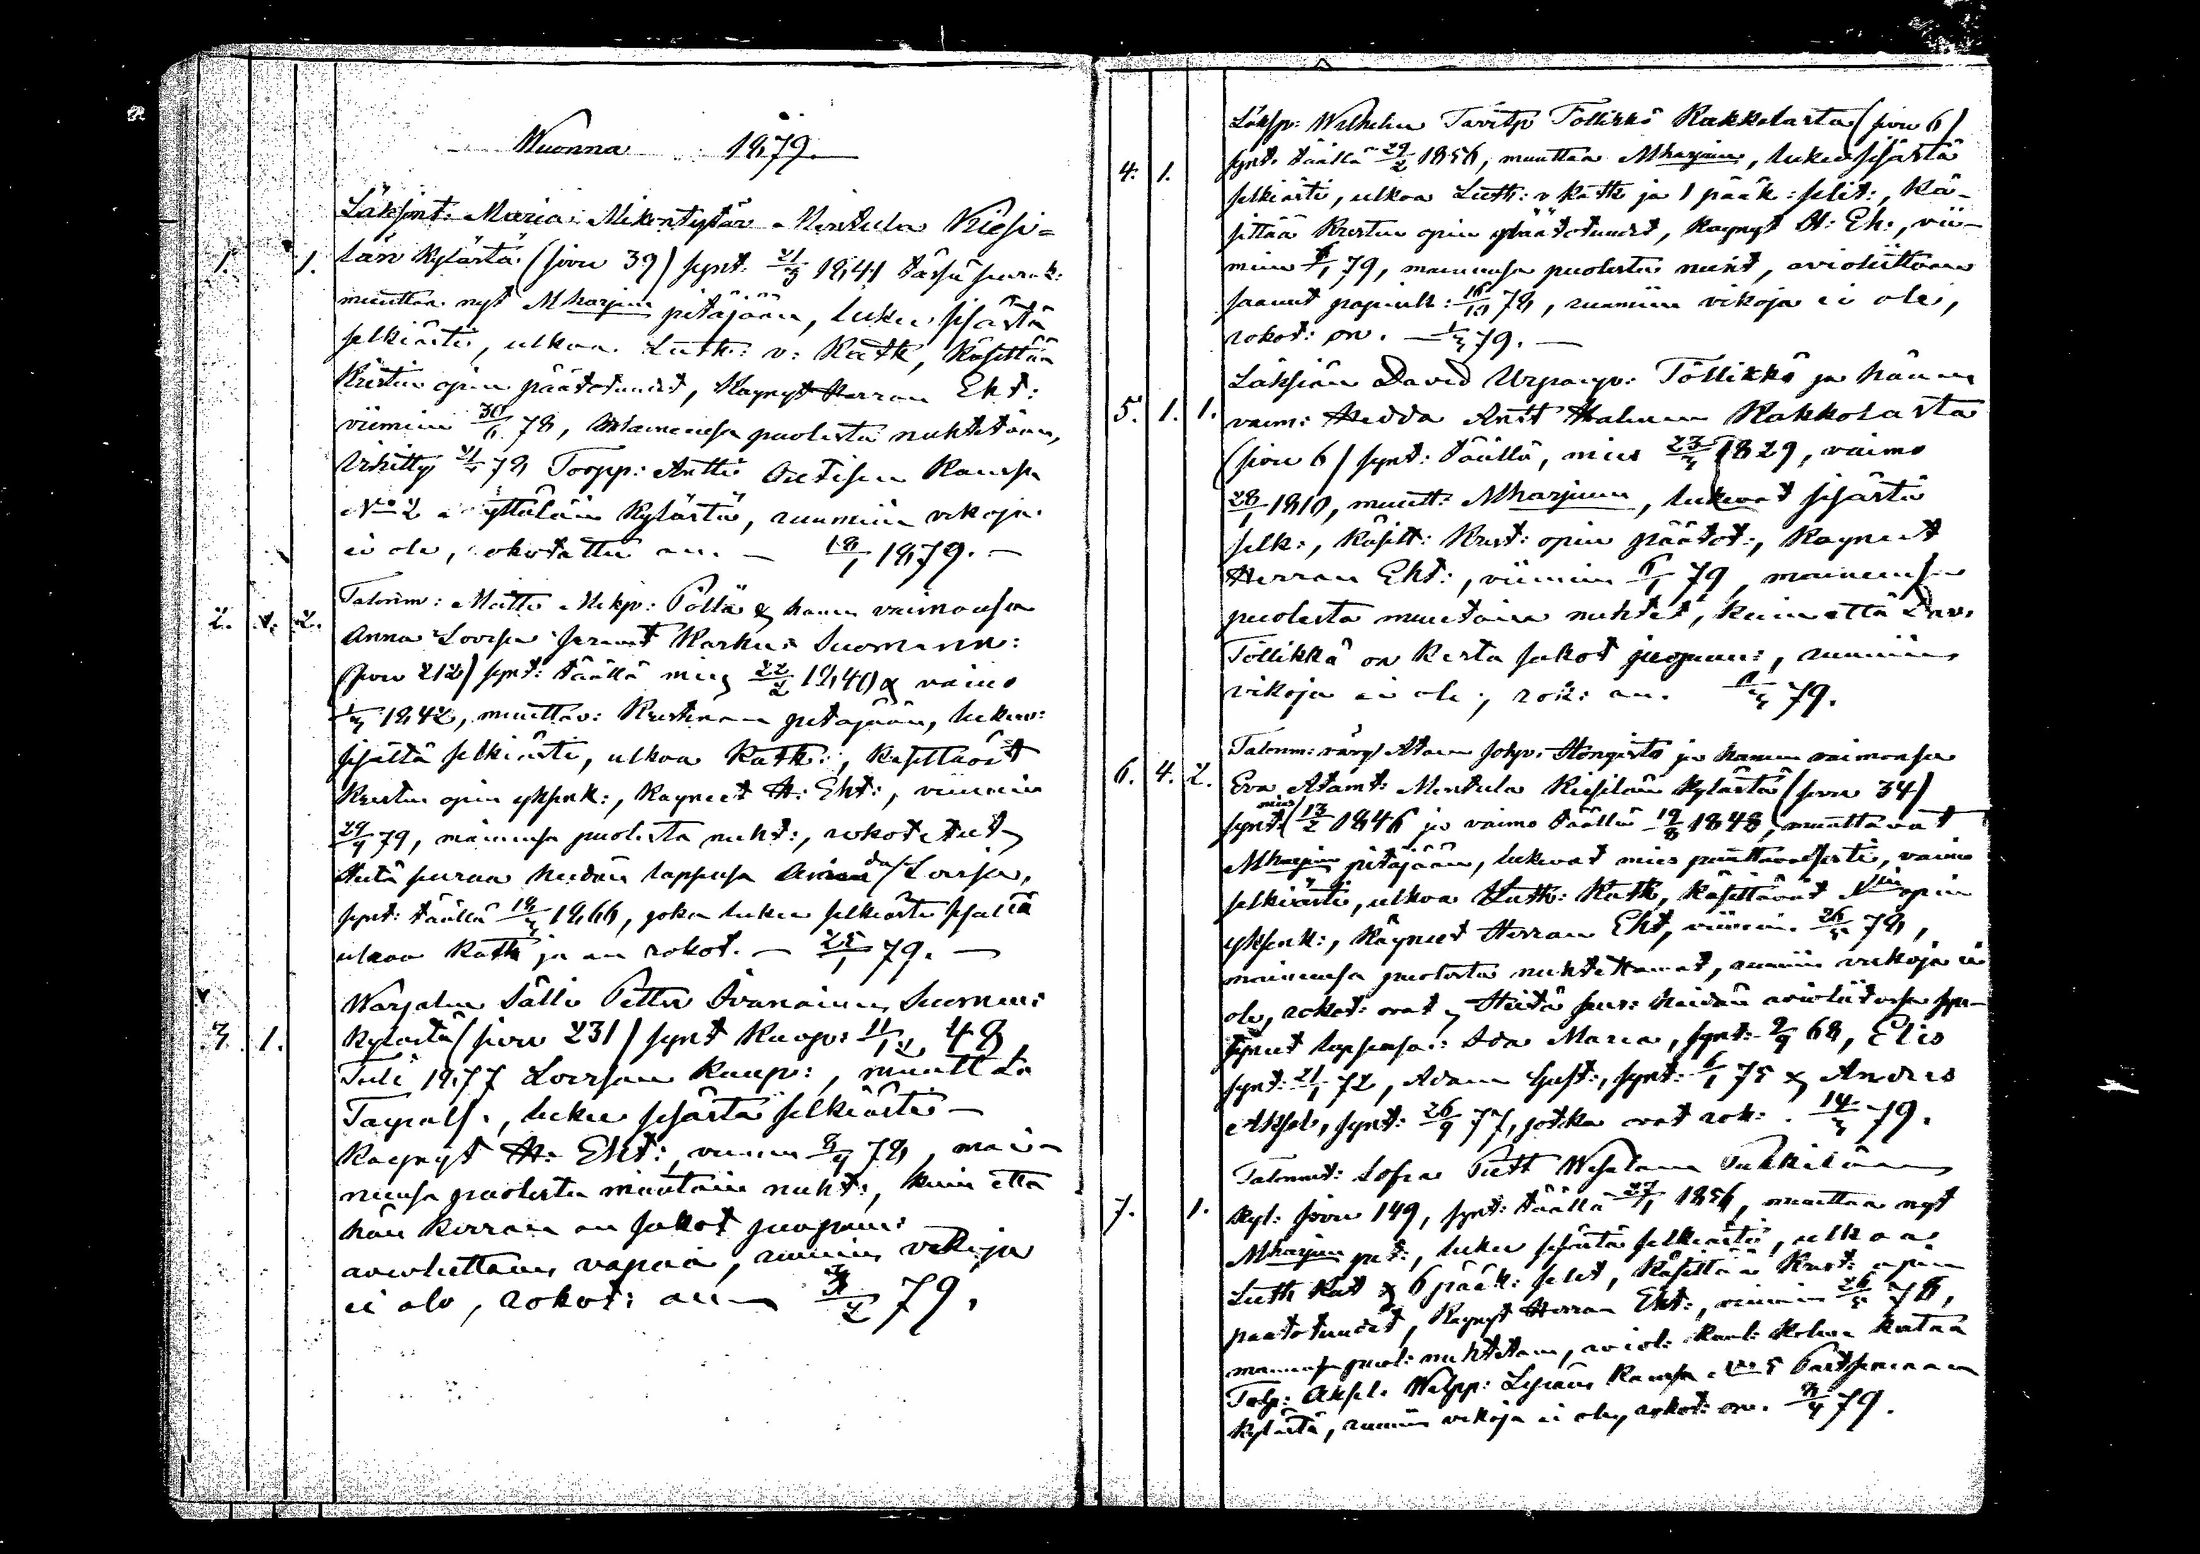 Wuonna 1879.
Läksint: Maria Mikontytär Mentula Kiesi=
1. 1. län kylästä (sivu 39) synt: 21/3 1841 tässä seurak:
muuttaa nyt Mharjun pitäjään, lukee sisästä
selkiästi, ulkoa Luth: v: Katk, käsittää
Kristin opin päätotuudet, Käynyt Herran Eht:
viimein 30/6 78, Maineensa puolesta nuhteton,
Vihitty 21/ 78 Torpp: Antti
No 2 kylästä, ruumiin vikoja
ei ole, rokotettu on. — 18/1 1879. —
2. 1. 2. Talonm: Matts Mikp: Pöllä & hänen vaimonsa
Anna Lovisa Suomenk:
(sivu 212) synt: täällä mies 22/2 1840 & vaimo
1842, muuttav: pitäjään, lukev:
sisältä selkiästi, ulkoa Katk:, Käsittävät
Kristin opin yksink:, Käyneet H: Eht:, viimein
79, maineensa puolesta nuht:, rokotetut,
Heitä seuraa heidän lapsensa Lovisa,
synt: täällä 1866, joka lukee selkiästi sisältä
ulkoa Katk ja on rokot. — 25/1 79. —
Warjalin Sälli Petter Suomen:
3. 1. kylästä (sivu 231) synt Kuop: 11/12 48,
Tuli 1877 Lovisan kaup:, muutt La
, lukee sisästä selkiästi —
Käynyt H: Eht:, viimein 8/9 78, mai-
neensa puolesta muutoin nuht:, kuin että
hän kerran on sakot juopum:
avioliittoon vapaa, ruumiin vikoja
ei ole, rokot: on — 3/2 79.
Läksp: Wilhelm Tavitp Töllikkö Kakkolasta (sivu 6)
4. 1. synt. täällä 29/2 1856, muuttaa Mharjuun, lukee sisästä
selkiästi, ulkoa Luth: v Katk ja 1 pääk: selit:, Kä-
sittää Kristin opin päätotuudet, Käynyt H: Eh:, vii-
mein 79, maineensa puolesta nuht, avioliittoon
saanut 16/10 78, ruumiin vikoja ei ole,
rokot: on. — 1/3 79. —
Läksiän David Töllikkö ja hänen
5. 1. 1. vaim: Hedda Antt Kakkolasta
(sivu 6) synt: täällä, mies 23/3 1829, vaimo
28/1 1810, muutt: Mharjuun, lukevat sisästä
selk:, käsitt: Krist: opin päätot:, Käyneet
Herran Eht:, viimein 6/1 79, maineensa
puolesta muutoin nuhtet, kuin että Dav:
Töllikkä on kerta sakot juopum:, ruumiin
vikoja ei ole, rok: on. 79.
Talonm: Adam Johp: Hongisto ja hänen vaimonsa
6. 4. 2. Eva Adamt: Mentula Kiesilän kylästä (sivu 34)
synt: mies 13/2 1846 ja vaimo täällä 19/8 1848, muuttavat
Mharjun pitäjään, lukevat mies puuttuvaisesti, vaimo
selkiästi, ulkoa Luth: Katk, käsittävät opin
yksink:, Käyneet Herran Eht, viimein 26/5 78,
maineensa puolesta nuhtettomat, ruumiin vikoja ei
ole, rokot: ovat, Heitä seur: heidän avioliitossa syn-
tyneet lapsensa: Ida Maria, synt: 9/9 68, Elis
synt: 21/1 72, Adam Gust:, synt: 6/1 75 & Anders
Aksel, synt: 26/9 77, jotka ovat rok: . 14/3 79.
Talonmt: Sofia Pett Wesalain Takkilän
7. 1. kyl: sivu 149, synt: täällä 27/1 1856, muuttaa nyt
Mharjun pit:, lukee sisästä selkiästi, ulkoa
Luth Kat & 6 pääk: selit, Käsittää Krist: opin
päätotuudet, Käynyt Herran Eht:, viimein 26/5 78,
maineensa puol: nuhteton, aviol:
Torp: Aksel No 5
kylästä, ruumiin vikoja ei ole, rokot: on. 79.